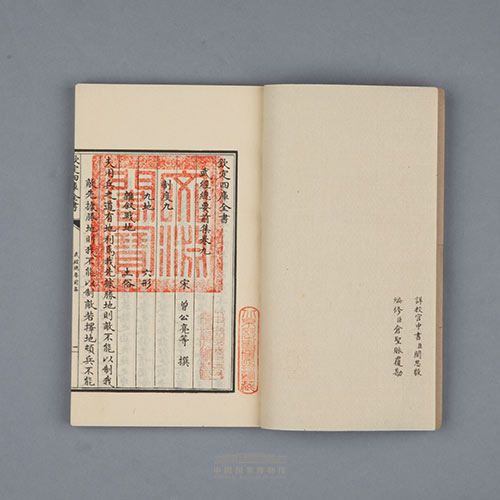 詳校官中書臣閻思毅
編修臣倉聖脉覆勘
欽定四庫全書
武經總要前集卷九
宋 曾公亮等 撰
制度九
九地 六形
雜敘戰地 土俗
夫用兵之道有地利焉我先據勝地則敵不能以制我
敵先據勝地則我不能以制敵若擇地頓兵不能
欽定四庫全書
武經總要前集
文淵閣寶
中國国家博物館